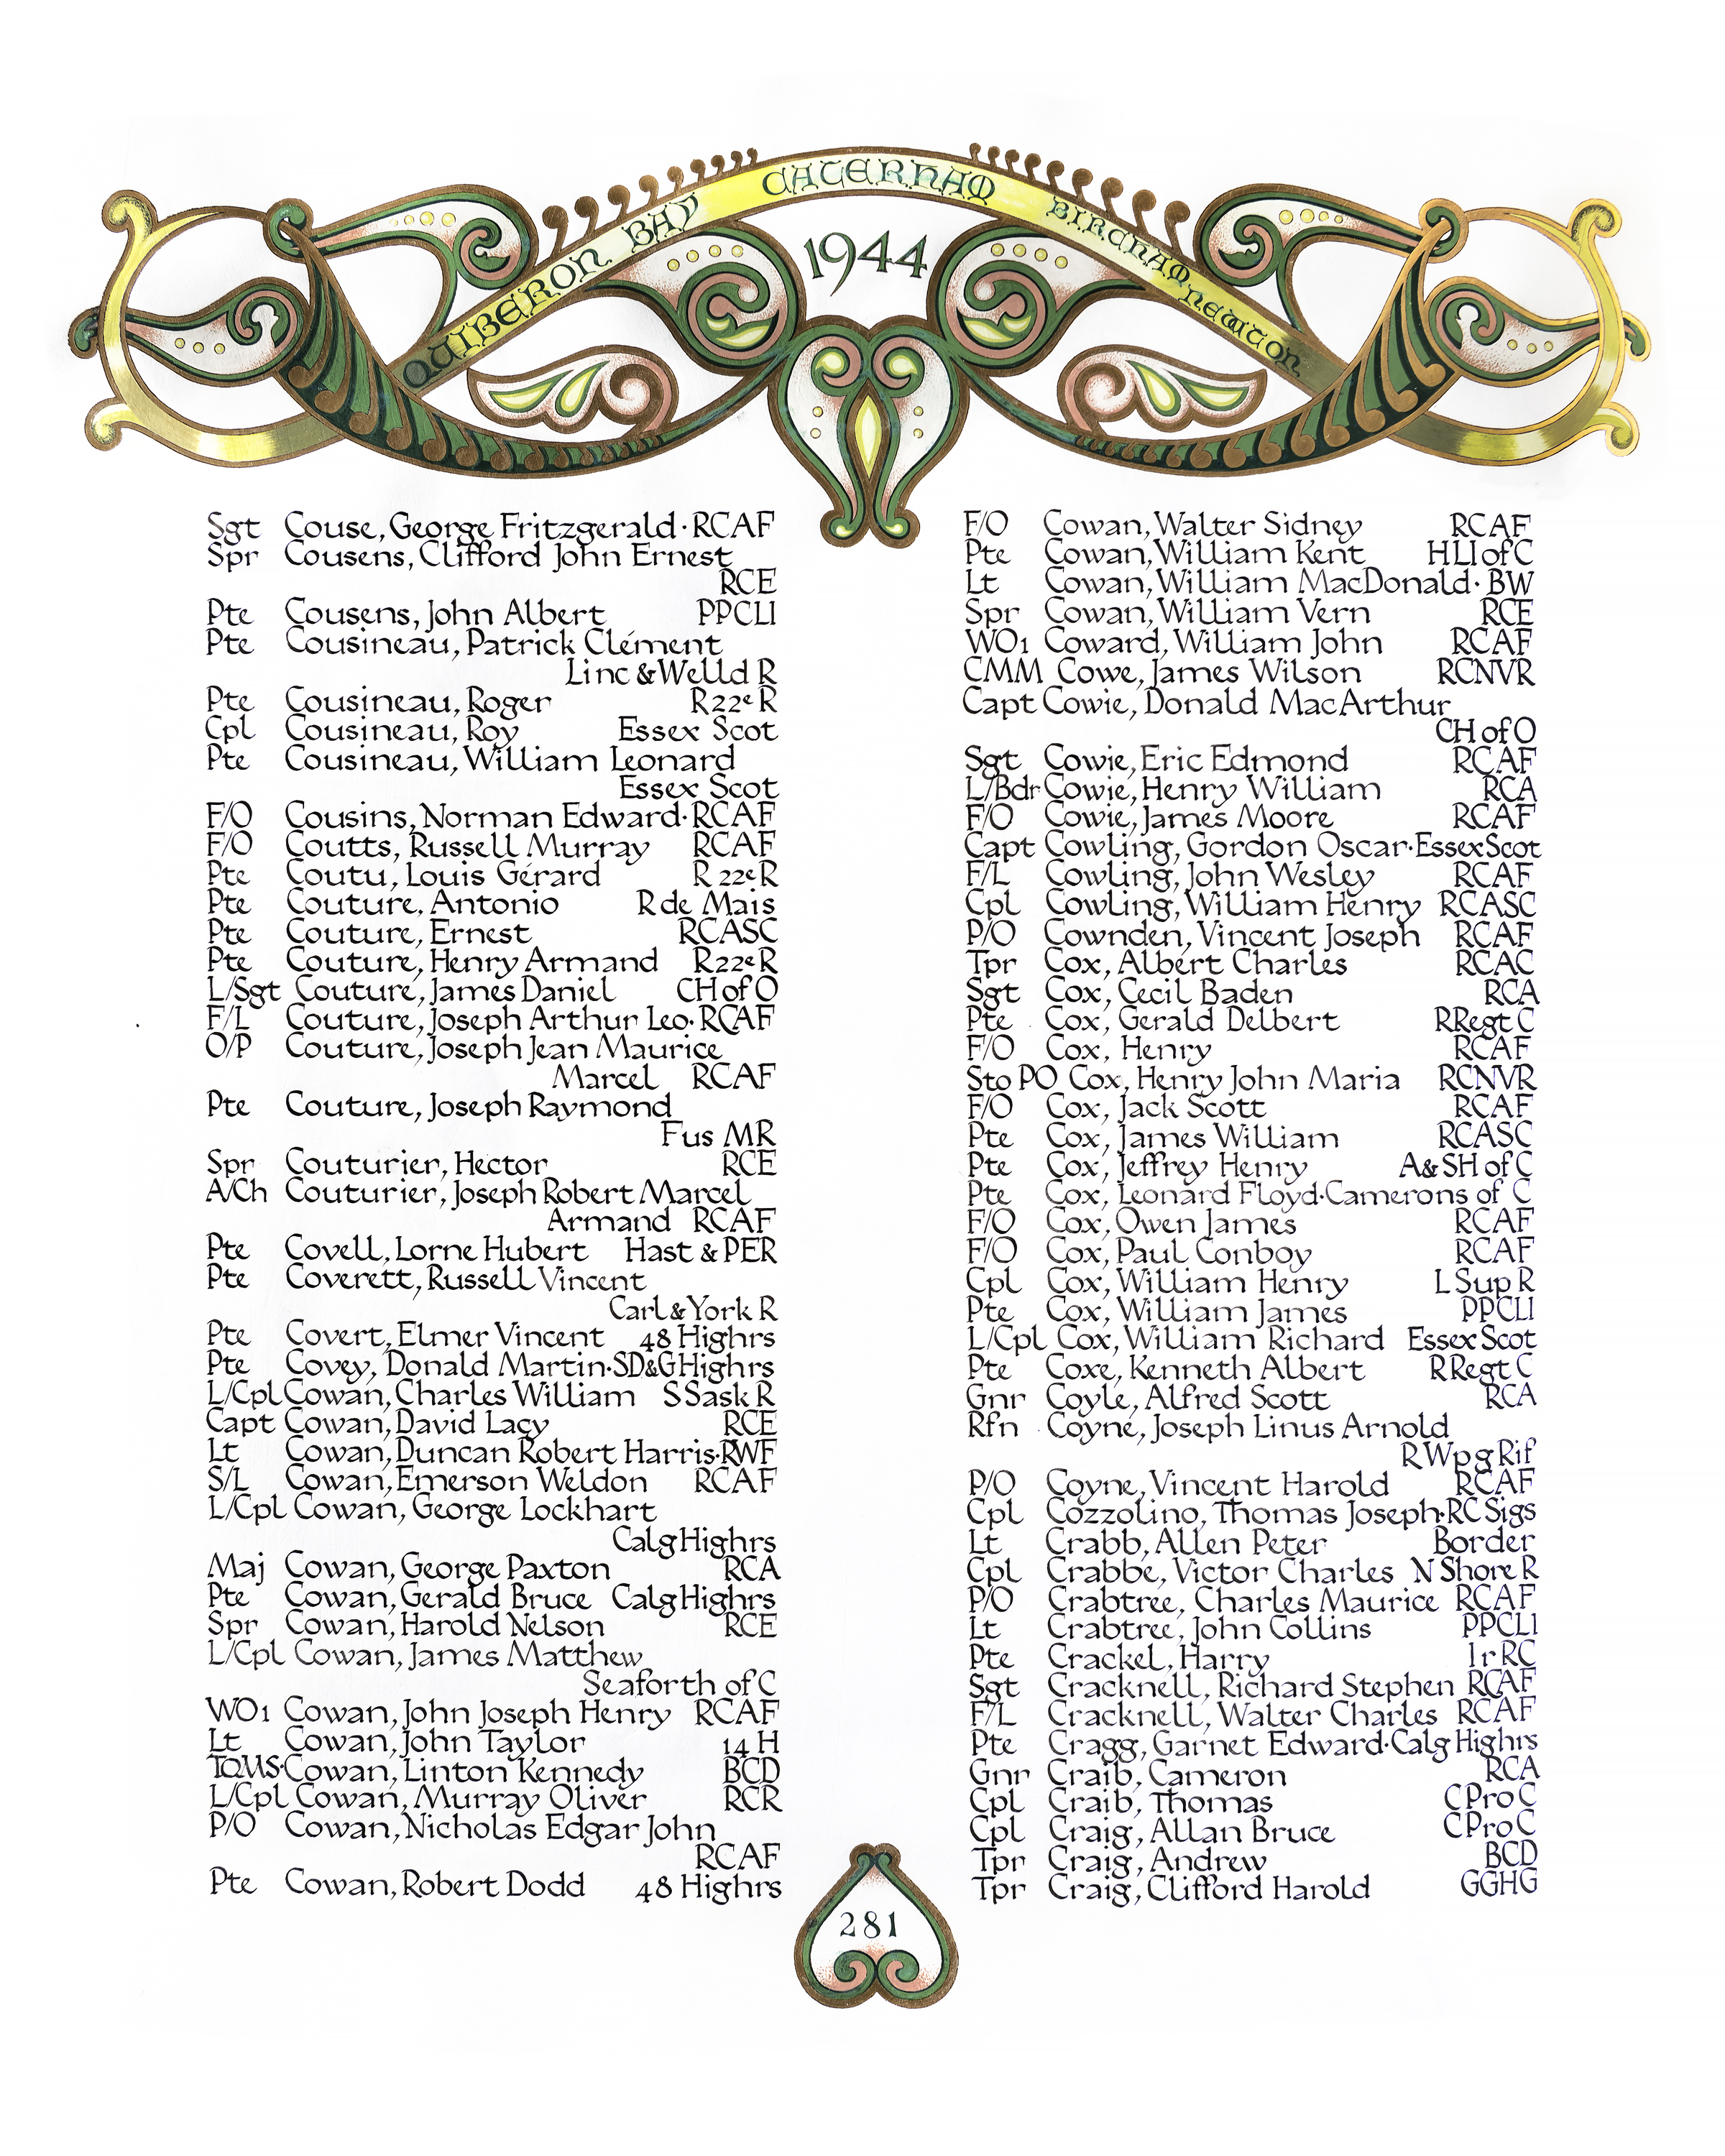 QUIBERON BAY CATERHAM BIRCHAM NEWTON
1944
Sgt Couse, George Fritzgerald · RCAF
Spr Cousens, Clifford John Ernest
RCE
Pte Cousens, John Albert PPCLI
Pte Cousineau, Patrick Clément
Linc & Welld R
Pte Cousineau, Roger R 22e R
Cpl Cousineau, Roy Essex Scot
Pte Cousineau, William Leonard
Essex Scot
F/O Cousins, Norman Edward · RCAF
F/O Coutts, Russell Murray RCAF
Pte Coutu, Louis Gérard R 22e R
Pte Couture, Antonio R de Mais
Pte Couture, Ernest RCASC
Pte Couture, Henry Armand R 22e R
L/Sgt Couture, James Daniel CH of O
F/L Couture, Joseph Arthur Leo · RCAF
O/P Couture, Joseph Jean Maurice
Marcel RCAF
Pte Couture, Joseph Raymond
Fus MR
Spr Couturier, Hector RCE
A/Ch Couturier, Joseph Robert Marcel
Armand RCAF
Pte Covell, Lorne Hubert Hast & PER
Pte Coverett, Russell Vincent
Carl & York R
Pte Covert, Elmer Vincent 48 Highrs
Pte Covey, Donald Martin · SD&G Highrs
L/Cpl Cowan, Charles William S Sask R
Capt Cowan, David Lacy RCE
Lt Cowan, Duncan Robert Harris · RWF
S/L Cowan, Emerson Weldon RCAF
L/Cpl Cowan, George Lockhart
Calg Highrs
Maj Cowan, George Paxton RCA
Pte Cowan, Gerald Bruce Calg Highrs
Spr Cowan, Harold Nelson RCE
L/Cpl Cowan, James Matthew
Seaforth of C
WO1 Cowan, John Joseph Henry RCAF
Lt Cowan, John Taylor 14 H
TQMS · Cowan, Linton Kennedy BCD
L/Cpl Cowan, Murray Oliver RCR
P/O Cowan, Nicholas Edgar John
RCAF
Pte Cowan, Robert Dodd 48 Highrs
F/O Cowan, Walter Sidney RCAF
Pte Cowan, William Kent HLI of C
Lt Cowan, William MacDonald · BW
Spr Cowan, William Vern RCE
WO1 Coward, William John RCAF
CMM Cowe, James Wilson RCNVR
Capt Cowie, Donald MacArthur
CH of O
Sgt Cowie, Eric Edmond RCAF
L/Bdr Cowie, Henry William RCA
F/O Cowie, James Moore RCAF
Capt Cowling, Gordon Oscar · Essex Scot
F/L Cowling, John Wesley RCAF
Cpl Cowling, William Henry RCASC
P/O Cownden, Vincent Joseph RCAF
Tpr Cox, Albert Charles RCAC
Sgt Cox, Cecil Baden RCA
Pte Cox, Gerald Delbert R Regt C
F/O Cox, Henry RCAF
Sto PO Cox, Henry John Maria RCNVR
F/O Cox, Jack Scott RCAF
Pte Cox, James William RCASC
Pte Cox, Jeffrey Henry A & SH of C
Pte Cox, Leonard Floyd · Camerons of C
F/O Cox, Owen James RCAF
F/O Cox, Paul Conboy RCAF
Cpl Cox, William Henry L Sup R
Pte Cox, William James PPCLI
L/Cpl Cox, William Richard Essex Scot
Pte Coxe, Kenneth Albert R Regt C
Gnr Coyle, Alfred Scott RCA
Rfn Coyne, Joseph Linus Arnold
R Wpg Rif
P/O Coyne, Vincent Harold RCAF
Cpl Cozzolino, Thomas Joseph · RC Sigs
Lt Crabb, Allen Peter Border
Cpl Crabbe, Victor Charles N Shore R
P/O Crabtree, Charles Maurice RCAF
Lt Crabtree, John Collins PPCLI
Pte Crackel, Harry Ir RC
Sgt Cracknell, Richard Stephen RCAF
F/L Cracknell, Walter Charles RCAF
Pte Cragg, Garnet Edward · Calg Highrs
Gnr Craib, Cameron RCA
Cpl Craib, Thomas C Pro C
Cpl Craig, Allan Bruce C Pro C
Tpr Craig, Andrew BCD
Tpr Craig, Clifford Harold GGHG
281